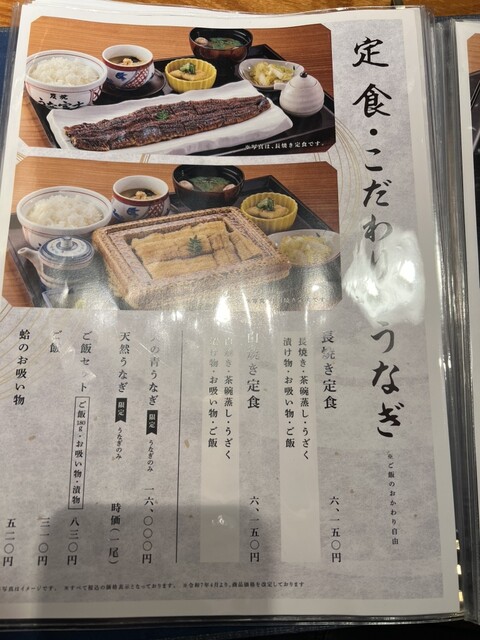 定食・こだわりうなぎ
※ご飯のおかわり自由
長焼き定食
長焼き・茶碗蒸し・うざく
漬け物・お吸い物・ご飯
六、一五〇円
白焼き定食
白焼き・茶碗蒸し・うざく
漬け物・お吸い物・ご飯
六、一五〇円
の青うなぎ 限定 うなぎのみ
一六、〇〇〇円
天然うなぎ 限定 うなぎのみ
時価(一尾)
ご飯セット ご飯180g・お吸い物・漬物
八三〇円
ご飯
三一〇円
蛤のお吸い物
五二〇円
※写真は、長焼き定食です。
うな富士
写真はイメージです。 ※すべて税込の価格表示となっております。 ※令和7年4月より、商品価格を改定しております